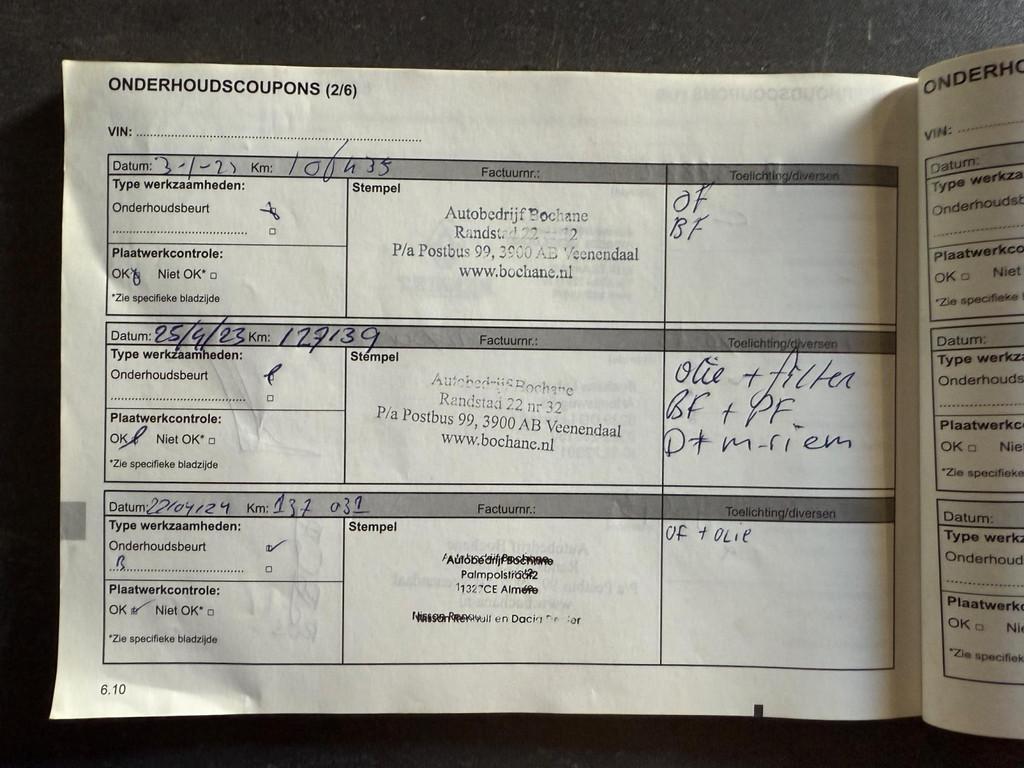 ONDERHOUDSCOUPONS (2/6)
VIN:
Datum: 3-1-23 Km: 106435 Factuurnr.: Toelichting/diversen
Type werkzaamheden:
Stempel
Onderhoudsbeurt
Plaatwerkcontrole:
OK Niet OK*
*Zie specifieke bladzijde
Autobedrijf Bochane
Randstad 22 32
P/a Postbus 99, 3900 AB Veenendaal
www.bochane.nl
OF
BF
Datum: 25/4/23 Km: 127139 Factuurnr.: Toelichting/diversen
Type werkzaamheden:
Stempel
Onderhoudsbeurt
Plaatwerkcontrole:
OK Niet OK*
*Zie specifieke bladzijde
Autobedrijf Bochane
Randstad 22 nr 32
P/a Postbus 99, 3900 AB Veenendaal
www.bochane.nl
olie + filter
BF + PF
D+ m-riem
Datum: 22/04/24 Km: 137 031 Factuurnr.: Toelichting/diversen
Type werkzaamheden:
Stempel
Onderhoudsbeurt
B
Plaatwerkcontrole:
OK Niet OK*
*Zie specifieke bladzijde
Autobedrijf Bochane
Palmpolstraat
1327CE Almere
Nissan en Dacia
OF + OLIE
6.10
ONDERHO
VIN:
Datum:
Type werkza
Onderhoudsb
Plaatwerkco
OK Niet
*Zie specifieke
Datum:
Type werkz
Onderhouds
Plaatwerkc
OK Nie
*Zie specifiek
Datum:
Type werk
Onderhoud
Plaatwerk
OK Ni
*Zie specifiek